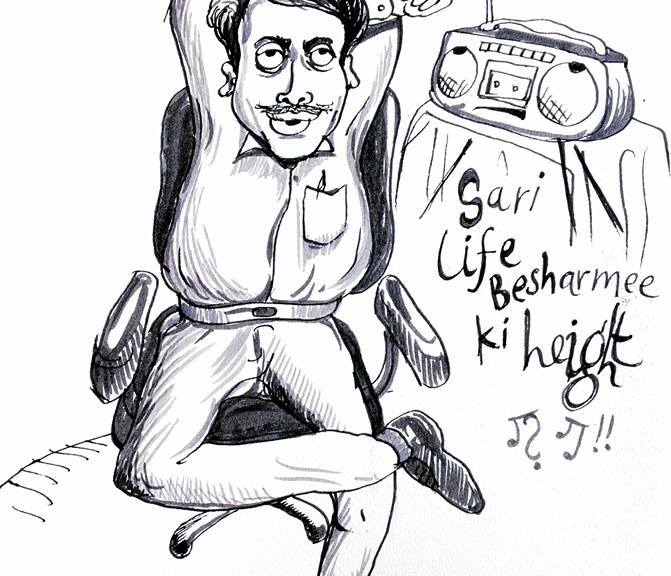 Sari
life
Besharmee
ki height